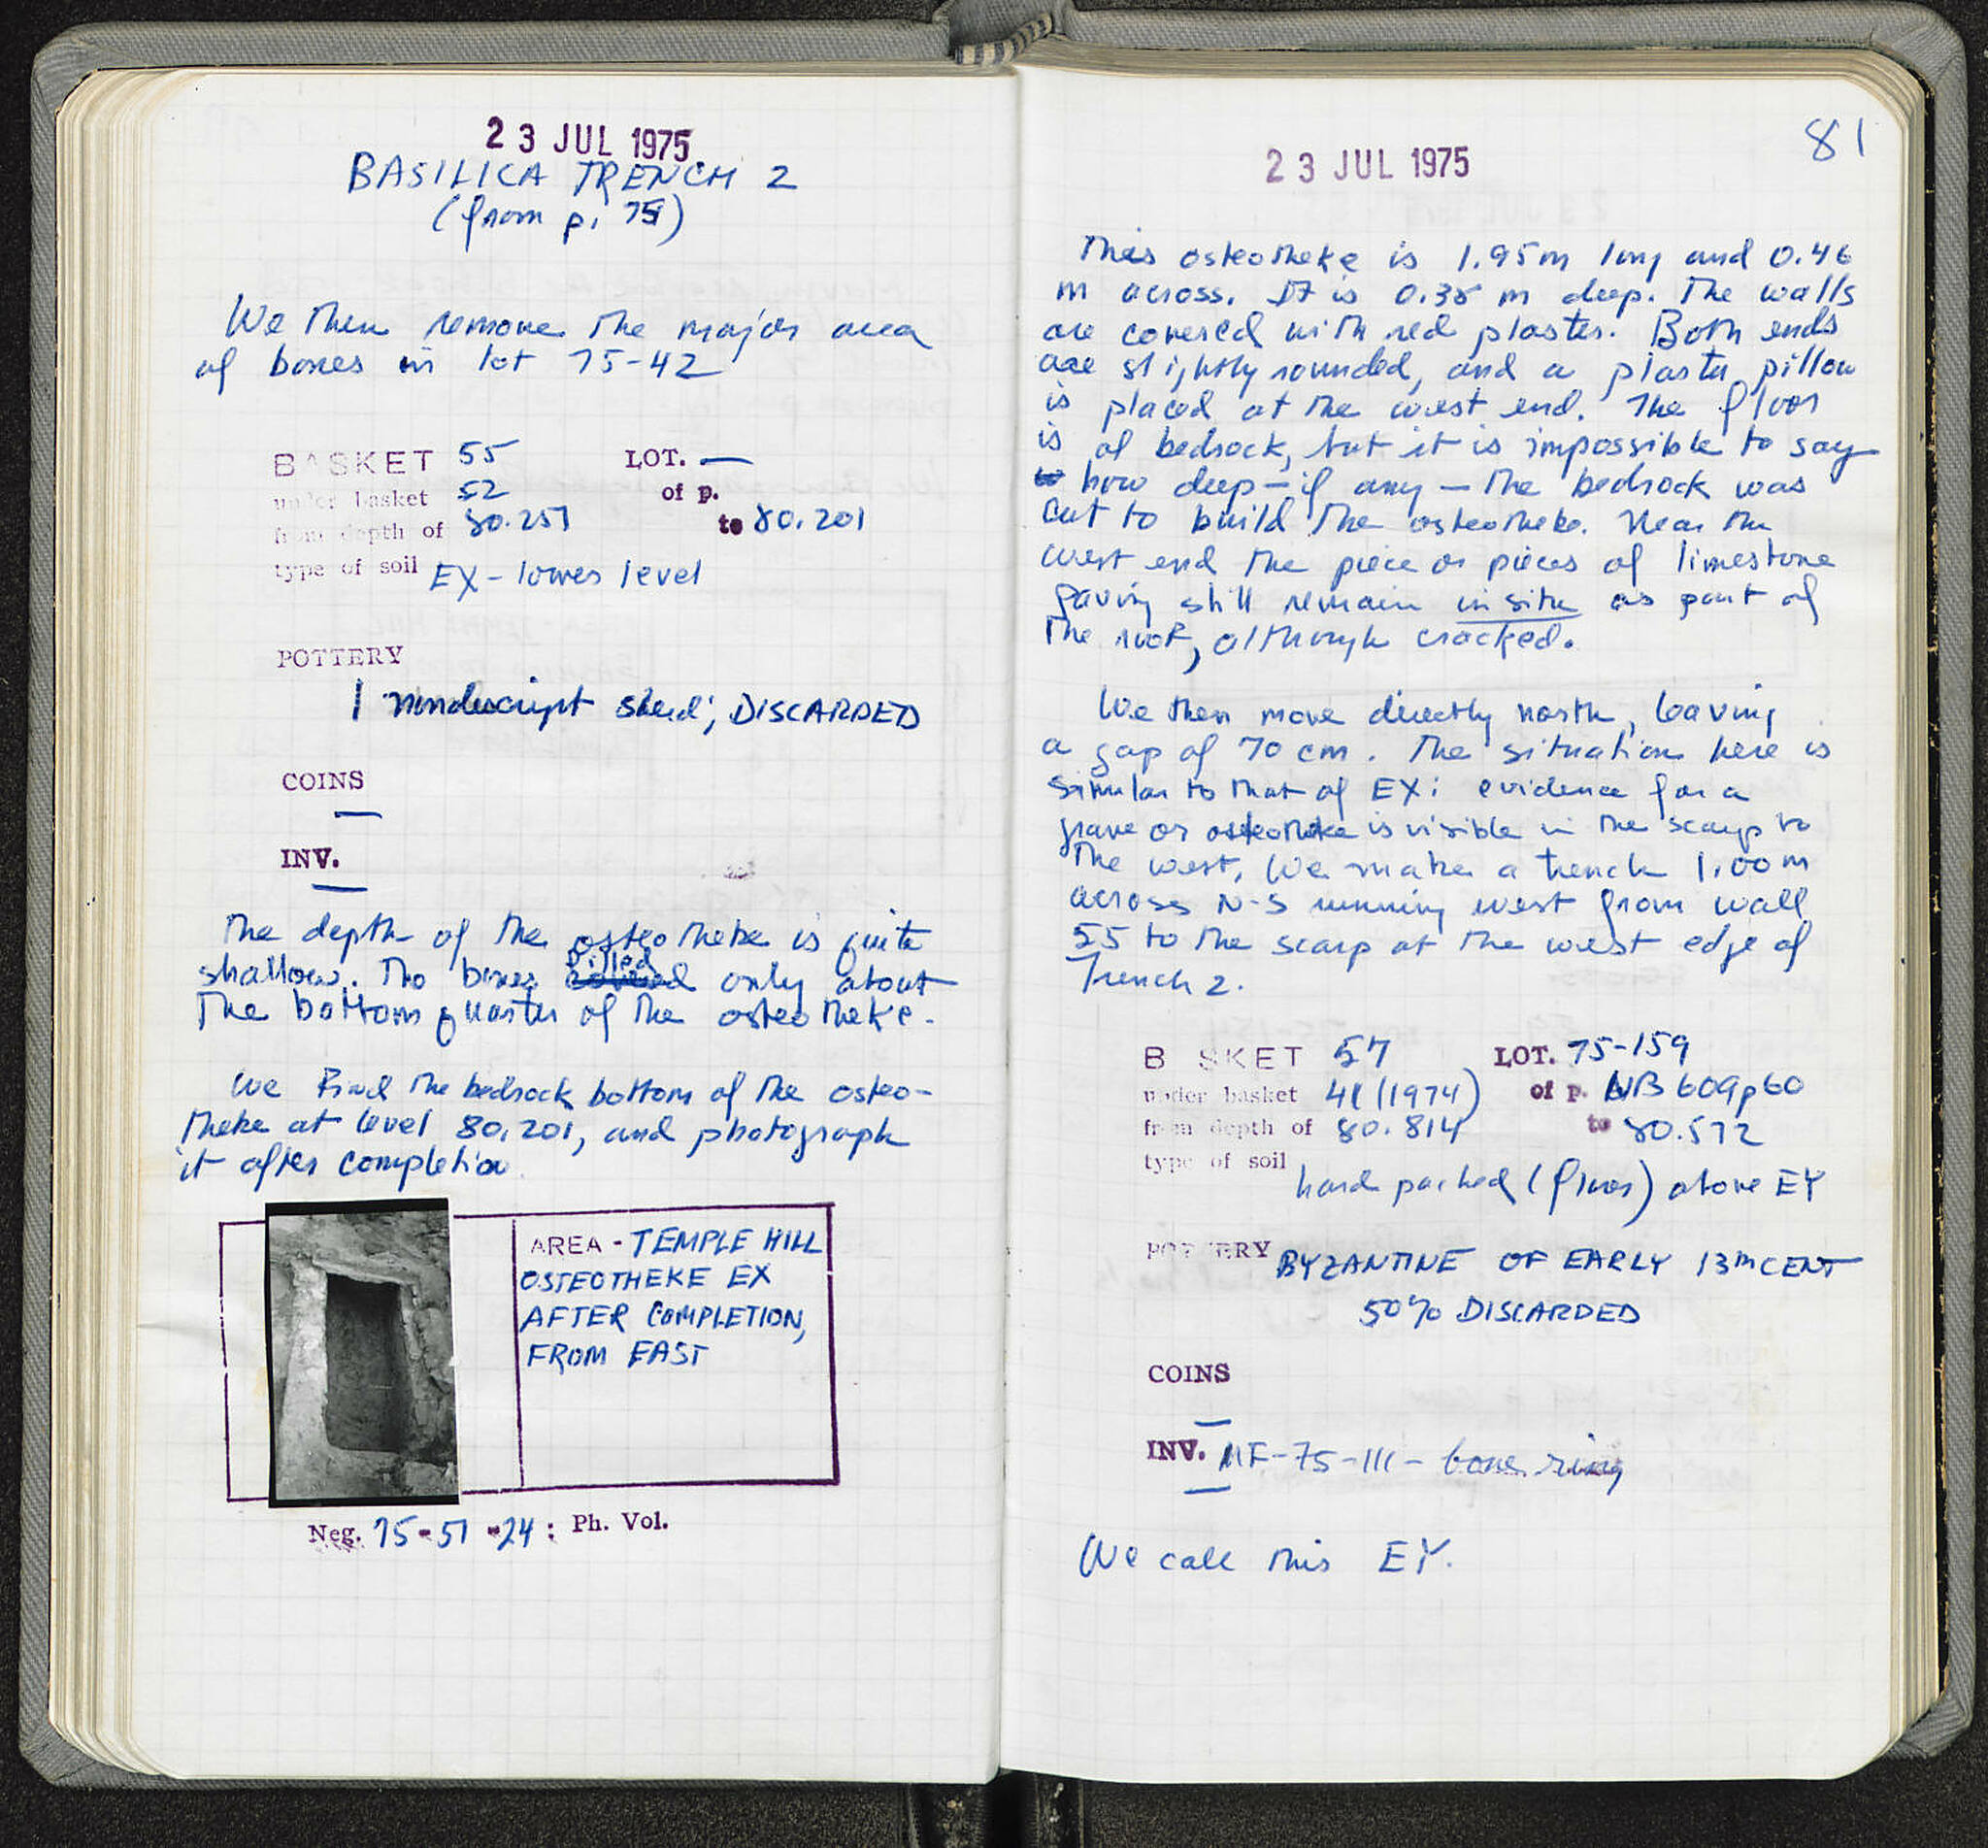 23 JUL 1975
BASILICA TRENCH 2
(from p. 75)
We then remove the major area
of bones in lot 75-42
BASKET 55 LOT. —
under basket 52 of p.
from depth of 80.257 to 80.201
type of soil EX - lower level
POTTERY
1 nondescript sherd; DISCARDED
COINS
—
INV.
—
The depth of the osteotheke is quite
shallow. The bones filled only about
the bottom quarter of the osteotheke.
We find the bedrock bottom of the osteo-
theke at level 80.201, and photograph
it after completion
AREA - TEMPLE HILL
OSTEOTHEKE EX
AFTER COMPLETION,
FROM EAST
Neg. 75-51-24: Ph. Vol.
81
23 JUL 1975
This osteotheke is 1.95m long and 0.46
m across. It is 0.38 m deep. The walls
are covered with red plaster. Both ends
are slightly rounded, and a plaster pillow
is placed at the west end. The floor
is of bedrock, but it is impossible to say
how deep - if any - the bedrock was
cut to build the osteotheke. Near the
west end the piece or pieces of limestone
paving still remain in situ as part of
the roof, although cracked.
We then move directly north, leaving
a gap of 70 cm. The situation here is
similar to that of EX: evidence for a
grave or osteotheke is visible in the scarp to
the west. We make a trench 1.00m
across N-S running west from wall
55 to the scarp at the west edge of
Trench 2.
BASKET 57 LOT. 75-159
under basket 41 (1974) of p. NB 609 p60
from depth of 80.814 to 80.572
type of soil hard packed (floor) above EY
POTTERY BYZANTINE OF EARLY 13TH CENT
50% DISCARDED
COINS
—
INV. MF-75-111 - bone ring
—
We call this EY.